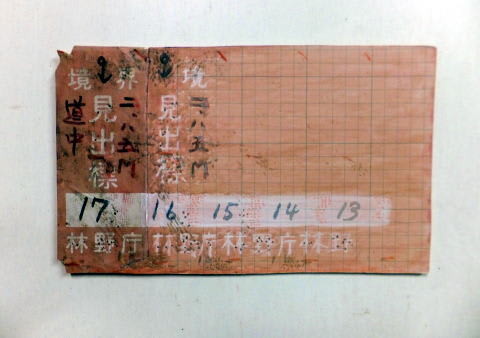 境界 境
見出標
見出標
道中
二.八五M
二.八五M
17 16 15 14 13
林野庁 林野庁 林野庁 林野